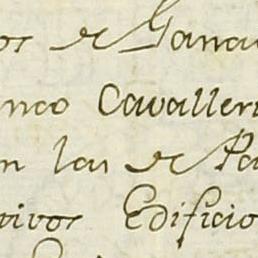 os de Gana
nco Cavaller
n las de Pa
tivos Edificio